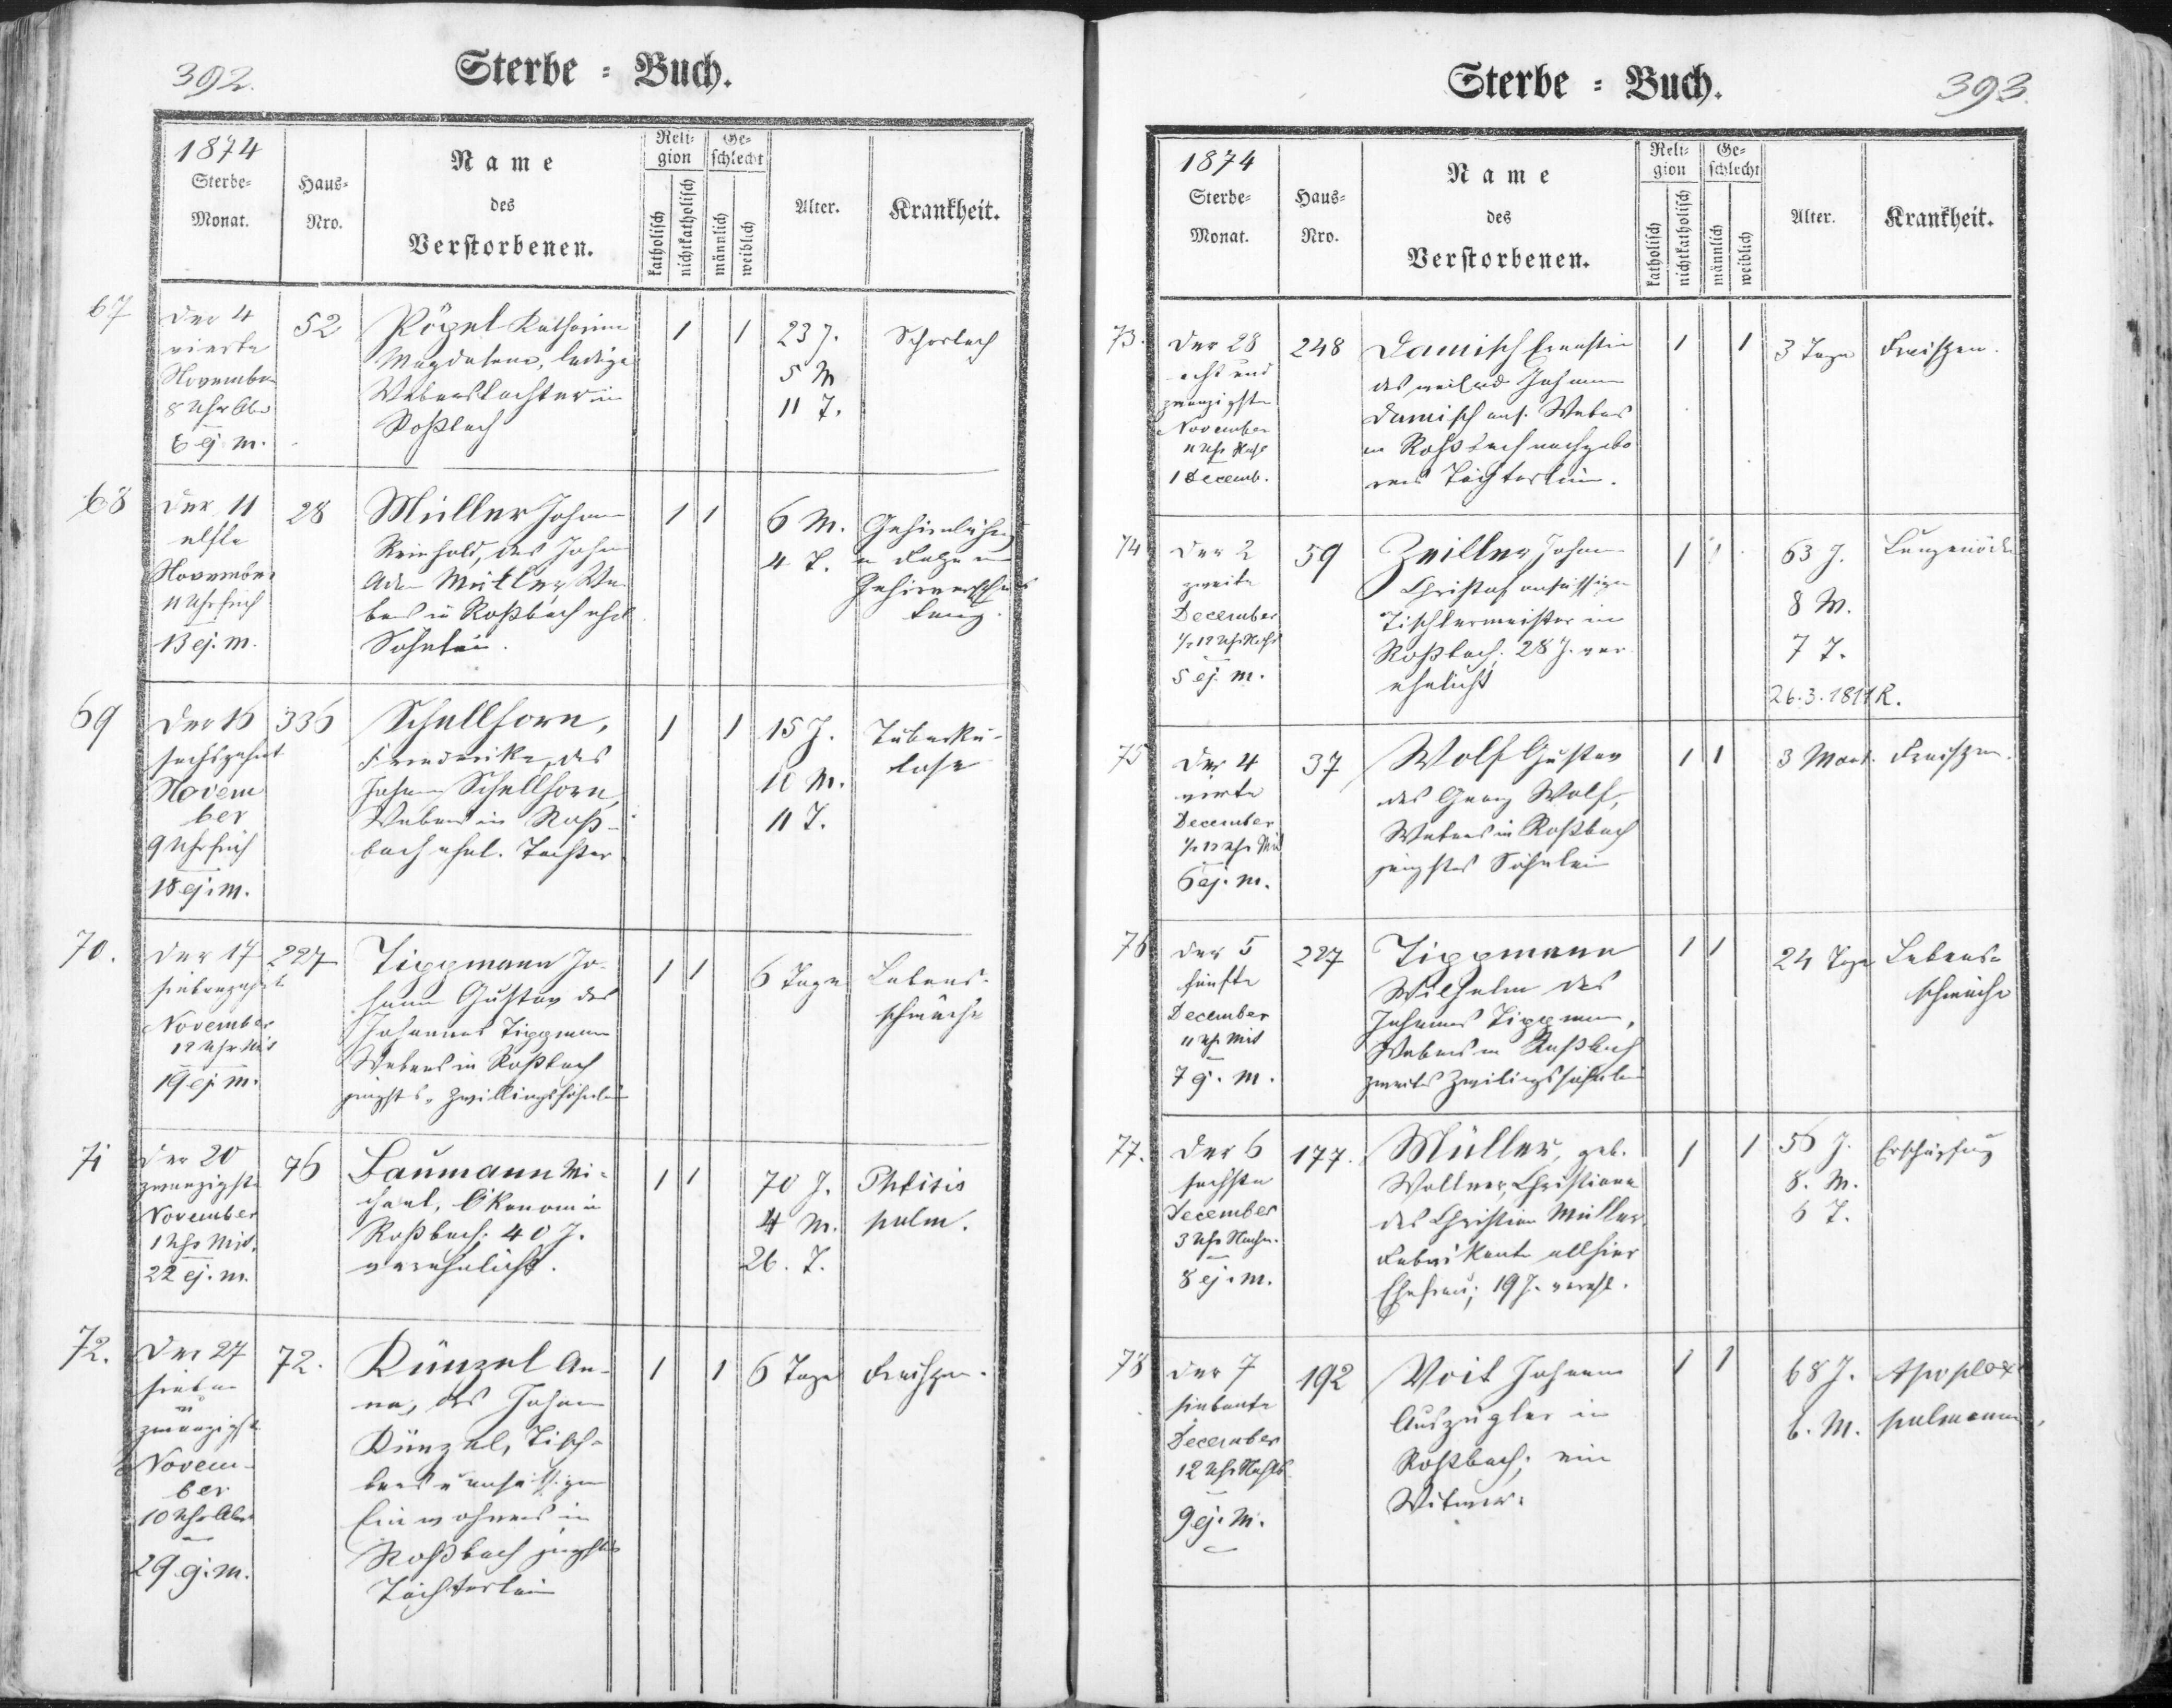 392.
Sterbe = Buch.
1874
Sterbe=
Monat.
Haus=
Nro.
Name
des
Verstorbenen.
Reli=
gion
katholisch
nichtkatholisch
Ge=
schlecht
männlich
weiblich
Alter.
Krankheit.
67
Der 4
vierte
November
8 Uhr Abd
6 ej. m.
52
Katharina
Magdalena, ledige
Weberstochter in
Roßbach
1
1
23 J.
5 M
11 T.
Scharlach
68
Der 11
elfte
November
11 Uhr früh
13 ej. m.
28
Müller Johann
Reinhold, des Johann
Adam Müller, We
bers in Roßbach ehel
Söhnlein.
1
1
6 M.
4 T.
69
Der 16
sechszehnt
Novem
ber
9 Uhr früh
18 ej. m.
336
Schellhorn,
Friedericke, des
Johann Schellhorn,
Webers in Roß-
bach ehel. Tochter
1
1
15 J.
10 M.
11 T.
Tuberku-
lose
70.
Der 17
siebenzehnt
November
12 Uhr Mit
19 ej. m.
227
Tippmann Jo-
hann Gustav des
Johannes Tippmann
Webers in Roßbach
jüngst. Zwillingssöhnlein
1
1
6 Tage
Lebens-
schwäche
71
Der 20
zwanzigste
November
1 Uhr Mit.
22 ej. m.
76
Baumann Mi-
chael, Ökonom in
Roßbach: 40 J.
verehelicht.
1
1
70 J.
4 M.
26. T.
Phtisis
pulm.
72.
Der 27
sieben
u
zwanzigste
Novem-
ber
10 Uhr Abd
29. ej. m.
72.
Künzel An-
na, des Johann
Künzel, Tisch-
lers u ansässigen
Einwohners in
Roßbach jüngstes
Töchterlein
1
1
6 Tage
Fraißen.
Sterbe = Buch.
393.
1874
Sterbe=
Monat.
Haus=
Nro.
Name
des
Verstorbenen.
Reli=
gion
katholisch
nichtkatholisch
Ge=
schlecht
männlich
weiblich
Alter.
Krankheit.
73.
Der 28
acht und
zwanzigste
November
11 Uhr Nachts
1 Decemb.
248
Damisch Ernestin
des weiland Johann
Damisch ans. Webers
in Roßbach nachgebo
renes Töchterlein.
1
1
3 Tage
Fraißen.
74
Der 2
zweite
December
1/2 12 Uhr Nachts
5 ej. m.
59
Zeidler Johann
Christof ansässiger
Tischlermeister in
Roßbach. 28 J. ver
ehelicht
1
1
63 J.
8 M.
7 T.
26.3.1811 R.
75
Der 4
vierte
December
1/2 12 Uhr Mit
6 ej. m.
37
Wolf Gustav
des Georg Wolf,
Webers in Roßbach
jüngstes Söhnlein
1
1
3 Mont.
Fraißen.
76
Der 5
fünfte
December
11 Uhr Mit
7 ej. m.
227
Tippmann
Wilhelm des
Johannes Tippmann,
Webers in Roßbach
zweites Zwilingssöhnlein
1
1
24 Tage
Lebens=
schwäche
77.
Der 6
sechste
December
3 Uhr Nachm.
8 ej. m.
177.
Müller, geb.
Wollner, Christiane
des Christian Müller,
Fabrikante allhier
Ehefrau; 19 J. verehl.
1
1
56 J.
8. M.
6 T.
Erschöpfung
78
Der 7
siebente
December
12 Uhr Nachts
9 ej. m.
192
Voit Johann
Auszügler in
Roßbach; ein
Witwer.
1
1
68 J.
6. M.
Apoplex
pulmonum.